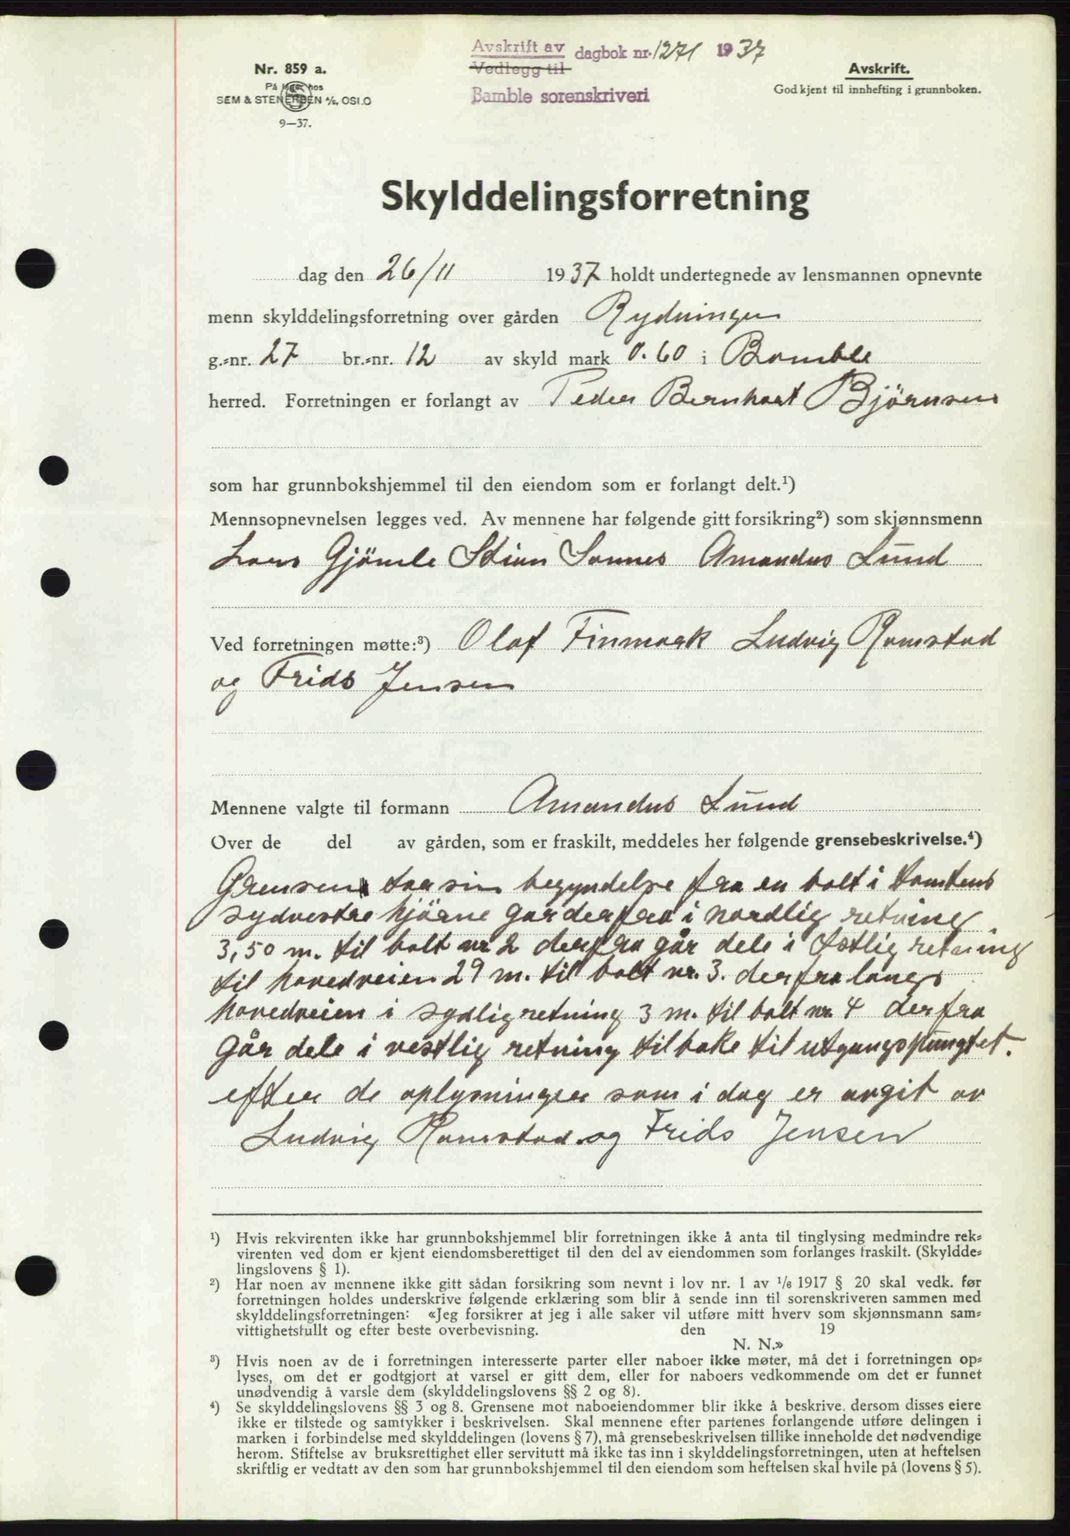 Avskrift av dagbok nr. 1271 1937
Vedlegg til
Bamble sorenskriveri
Nr. 859 a.
På lager hos
SEM & STENERSEN A/S, OSLO
9—37.
Avskrift.
Godkjent til innhefting i grunnboken.
Skylddelingsforretning
dag den 26/11 1937 holdt undertegnede av lensmannen opnevnte
menn skylddelingsforretning over gården Rydningen
g.-nr. 27 br.-nr. 12 av skyld mark 0.60 i Bamble
herred. Forretningen er forlangt av Peder Bernhart Bjørnsen
som har grunnbokshjemmel til den eiendom som er forlangt delt.¹)
Mennsopnevnelsen legges ved. Av mennene har følgende gitt forsikring²) som skjønnsmenn
Lars Gjömle Stian Sannes Amandus Lund
Ved forretningen møtte:³) Olaf Finmark Ludvig Ramstad
og Frids Jensen
Mennene valgte til formann Amandus Lund
Over de del av gården, som er fraskilt, meddeles her følgende grensebeskrivelse.⁴)
Grensen tar sin begyndelse fra en bolt i tomtens
sydvestre hjørne går derfra i nordlig retning
3,50 m. til bolt nr 2 derfra går dele i Østlig retning
til hovedveien 29 m. til bolt nr. 3. derfra langs
hovedveien i sydlig retning 3 m. til bolt nr. 4 derfra
går dele i vestlig retning tilbake til utgangspungtet.
efter de oplysninger som i dag er avgit av
Ludvig Ramstad og Frids Jensen
¹) Hvis rekvirenten ikke har grunnbokshjemmel blir forretningen ikke å anta til tinglysing medmindre rek-
virenten ved dom er kjent eiendomsberettiget til den del av eiendommen som forlanges fraskilt. (Skyldde-
lingslovens § 1).
²) Har noen av mennene ikke gitt sådan forsikring som nevnt i lov nr. 1 av 1/6 1917 § 20 skal vedk. før
forretningen holdes underskrive følgende erklæring som blir å sende inn til sorenskriveren sammen med
skylddelingsforretningen: «Jeg forsikrer at jeg i alle saker vil utføre mitt hverv som skjønnsmann sam-
vittighetsfullt og efter beste overbevisning. den 19
N. N.»
³) Hvis noen av de i forretningen interesserte parter eller naboer ikke møter, må det i forretningen op-
lyses, om det er godtgjort at varsel er gitt dem, eller for naboers vedkommende om det er funnet
unødvendig å varsle dem (skylddelingslovens §§ 2 og 8).
⁴) Se skylddelingslovens §§ 3 og 8. Grensene mot naboeiendommer blir ikke å beskrive, dersom disses eiere
ikke er tilstede og samtykker i beskrivelsen. Skal mennene efter partenes forlangende utføre delingen i
marken i forbindelse med skylddelingen (lovens § 7), må grensebeskrivelsen tillike inneholde det nødvendige
herom. Stiftelse av bruksrettighet eller servitutt må ikke tas inn i skylddelingsforretningen, uten at heftelsen
skriftlig er vedtatt av den som har grunnbokshjemmel til den eiendom som heftelsen skal hvile på (lovens § 5).